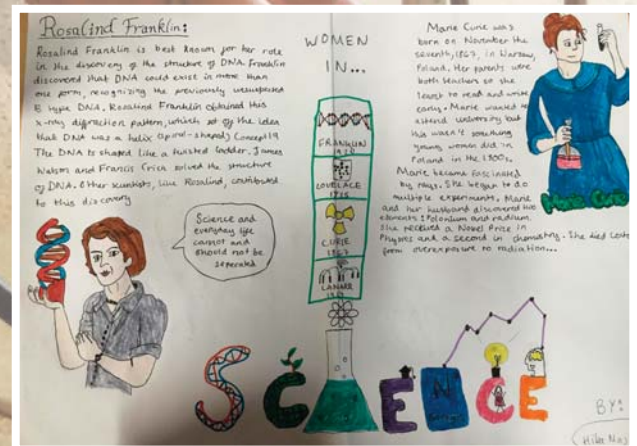 Rosalind Franklin:
Rosalind Franklin is best known for her role
in the discovery of the structure of DNA. Franklin
discovered that DNA could exist in more than
one form, recognizing the previously unsuspected
B type DNA. Rosalind Franklin obtained this
x-ray diffraction pattern, which set of the idea
that DNA was a helix (spiral-shaped) Concept 19
The DNA is shaped like a twisted ladder. James
Watson and Francis Crick solved the structure
of DNA. Other scientists, like Rosalind, contributed
to this discovery
Science and
everyday life
cannot and
should not be
seperated
WOMEN
IN...
FRANKLIN
1920
LOVELACE
1815
CURIE
1867
LAMARR
Marie Curie was
born on November the
seventh, 1867, in Warsaw,
Poland. Her parents were
both teachers so she
learnt to read and write
early. Marie wanted to
attend university but
this wasn't something
young women did in
Poland in the 1800s.
Marie became fascinated
by rays. She began to do
multiple experiments. Marie
and her husband discovered two
elements: Polonium and radium.
She received a Nobel Prize in
Physics and a second in chemistry. She died later
from overexposure to radiation...
Marie Curie
SCIENCE
BY:
Hiba